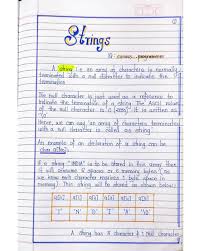 Strings
A string is an array of characters is normally
terminated with a null character to indicate the
termination
The null character is just used as a reference to
indicate the termination of a string. The ASCII value
of the null character is 0 (zero). It is written as
'\0'
Hence, we can say an array of characters terminated
with a null character is called as string.
An example of an declaration of a string can be
char a[10];
If a string "INDIA" is to be stored in this array then
it will consume 6 spaces or 6 memory bytes (as
we know each character requires 1 byte space in
memory.) This string will be stored as shown below:
a[0] a[1] a[2] a[3] a[4] a[5]
'I' 'N' 'D' 'I' 'A' '\0'
A string has n character & 1 null